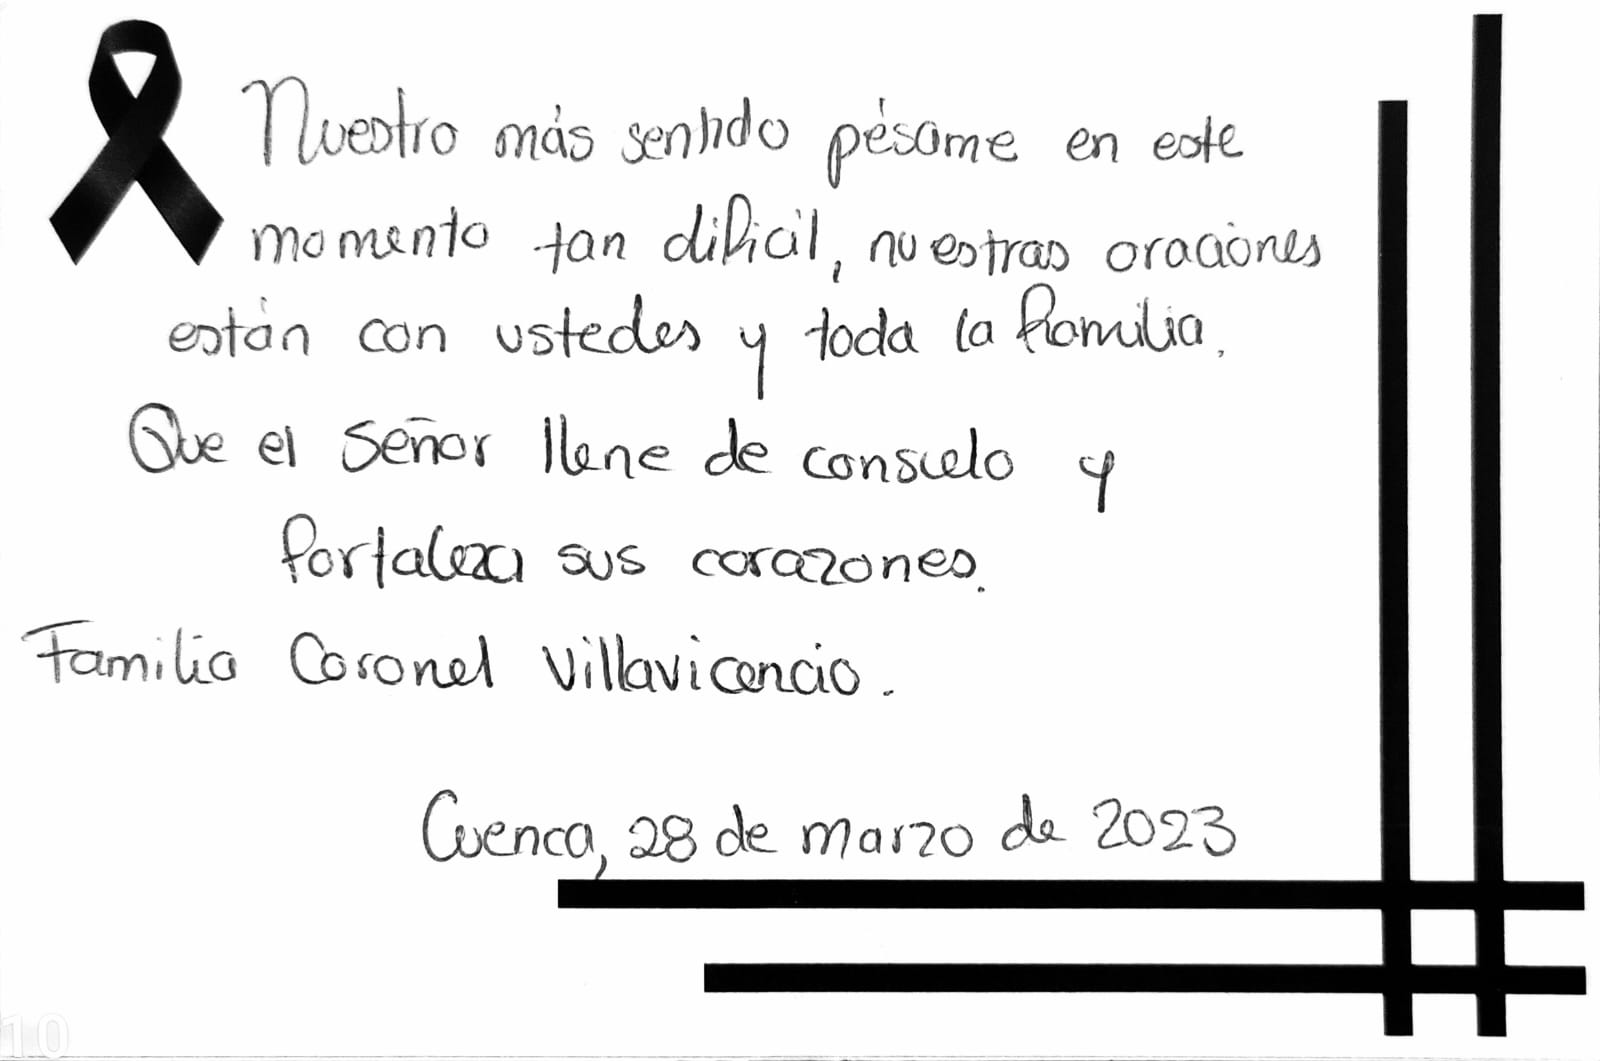 Nuestro más sentido pésame en este
momento tan difícil, nuestras oraciones
están con ustedes y toda la familia.
Que el Señor llene de consuelo y
fortaleza sus corazones.
Familia Coronel Villavicencio.
Cuenca, 28 de marzo de 2023
10